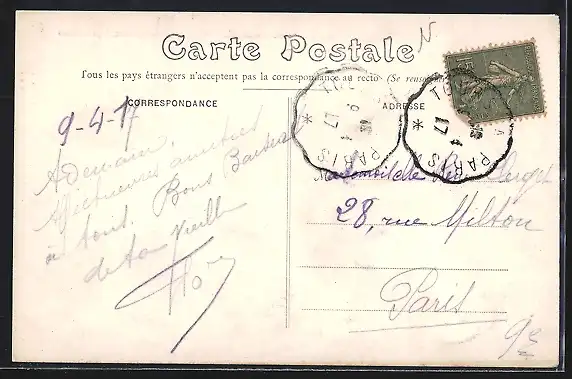 Carte Postale
Tous les pays étrangers n'acceptent pas la correspondance au recto (Se rense
CORRESPONDANCE
ADRESSE
9-4-17
A demain,
Affectueuses amitiés
à tous. Bons Baisers
de ta vieille
Flore
Mademoiselle
28, rue Milton
Paris
PARIS
17
PARIS
17